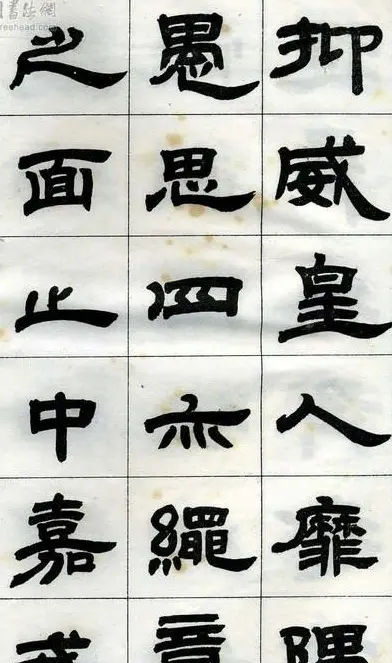 書法網
reehead.com
抑威皇人靡隅
愚思四亦繩
之面止中嘉